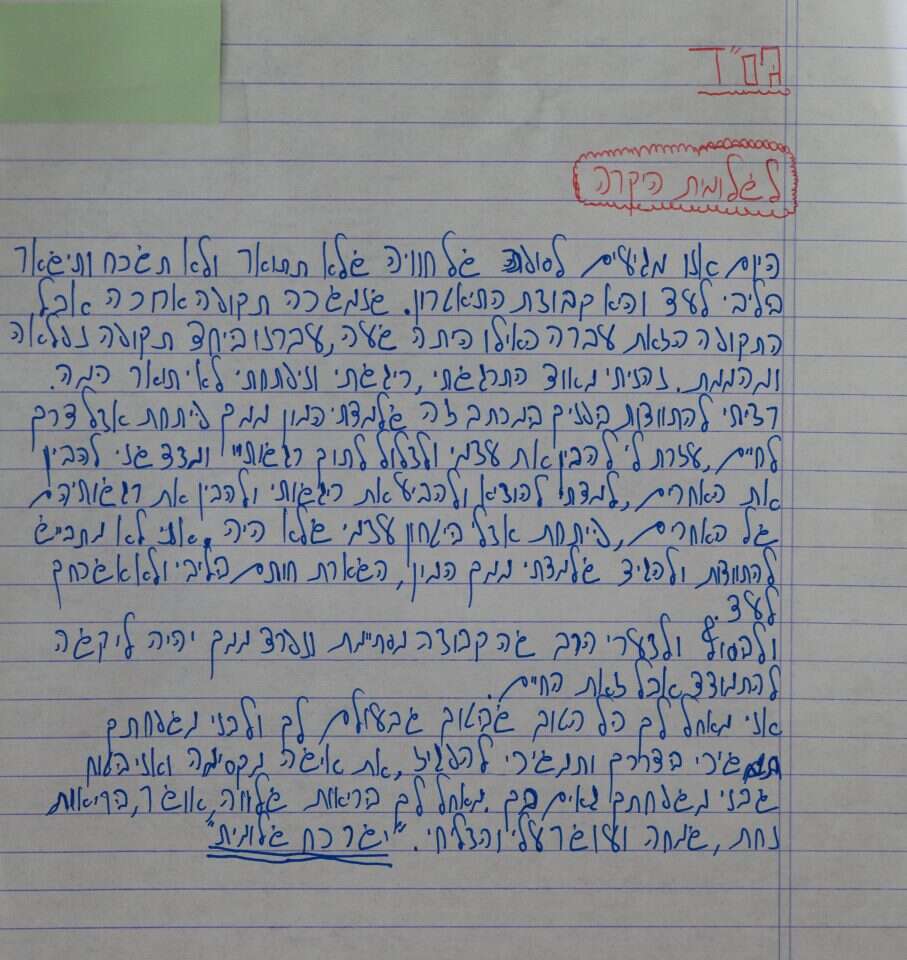 בס"ד
לשלומית היקרה
היום אנו מגיעים לסופה של חוויה שלא תתואר ולא תשכח ותישאר
בליבי לעד והיא קבוצת התיאטרון. שנגמרה תקופה ארוכה אבל
התקופה הזאת עברה כאילו היתה שעה, עברנו ביחד תקופה נפלאה
ומהממת. נהניתי מאוד התרגשתי, ריגשתי ונפתחתי לא יתואר כמה.
רציתי להתוודות בפנים במכתב זה שלמדתי המון ממך פיתחת אצל דרך
לחיים, עזרת לי להבין את עצמי ולצלול לתוך רגשותיי ומצד שני להבין
את האחרים, למדתי להוציא ולהביע את ריגשותי ולהבין את רגשותיהם
של האחרים, פיתחת אצלי ביטחון עצמי שלא היה. אני לא מתבייש
להתוודות ולהגיד שלמדתי ממך המון, השארת חותם בליבי ולא אשכחך
לעד.
ולבסוף ולצערי הרב שהקבוצה מסתיימת ונפרד ממך יהיה לי קשה
להתמודד אבל זאת החיים.
אני מאחל לך כל הטוב שבטוב שבעולם לך ולבני משפחתך
שירי בדרכך ותמשיכי להשפיע, את אישה מקסימה ואני בטוח
שבני משפחתך גאים בך. מאחל לך בריאות שלווה, אושר, בריאות
נחת, שמחה ועושר עלי והצליחי. "יישר כח שלומית"